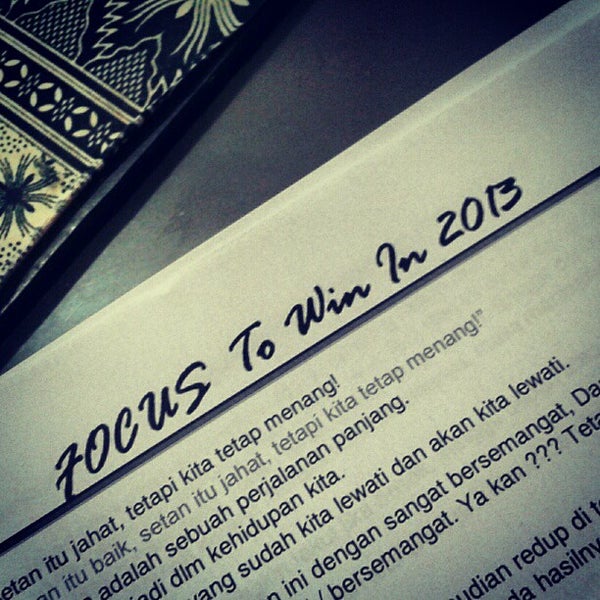 FOCUS To Win In 2013
setan itu jahat, tetapi kita tetap menang!
itu baik, setan itu jahat, tetapi kita tetap menang!"
adalah sebuah perjalanan panjang.
jadi dlm kehidupan kita.
yang sudah kita lewati dan akan kita lewati.
ini dengan sangat bersemangat,
/ bersemangat. Ya kan ???
redup di
hasilny